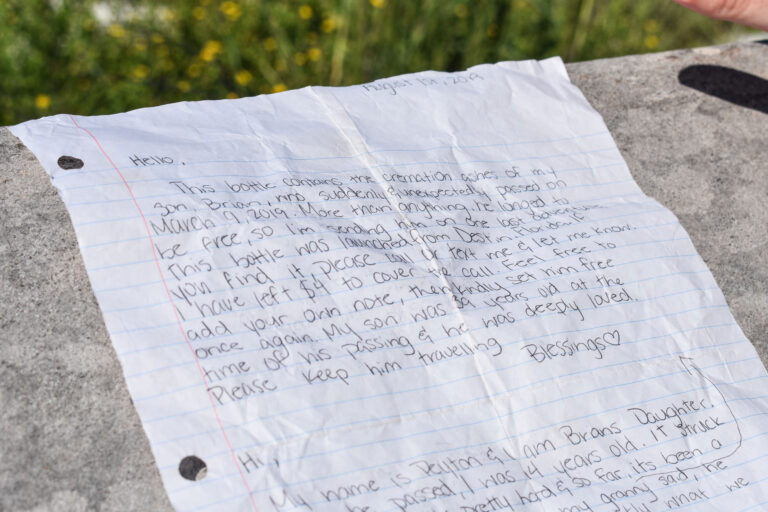 August 1st, 2019
Hello,
This bottle contains the cremation ashes of my
son Brian, who suddenly & unexpectedly passed on
March 9, 2019. More than anything, he longed to
be free, so I'm sending him on one last adventure.
This bottle was launched from Destin Florida. If
you find it please call or text me & let me know.
I have left $4 to cover the call. Feel free to
add your own note, then kindly set him free
once again. My son was 39 years old at the
time of his passing & he was deeply loved.
Please keep him travelling Blessings♡
Hi,
My name is Peyton & I am Brians Daughter.
he passed, I was 14 years old. It struck
pretty hard & so far, its been a
my granny said, he
what we